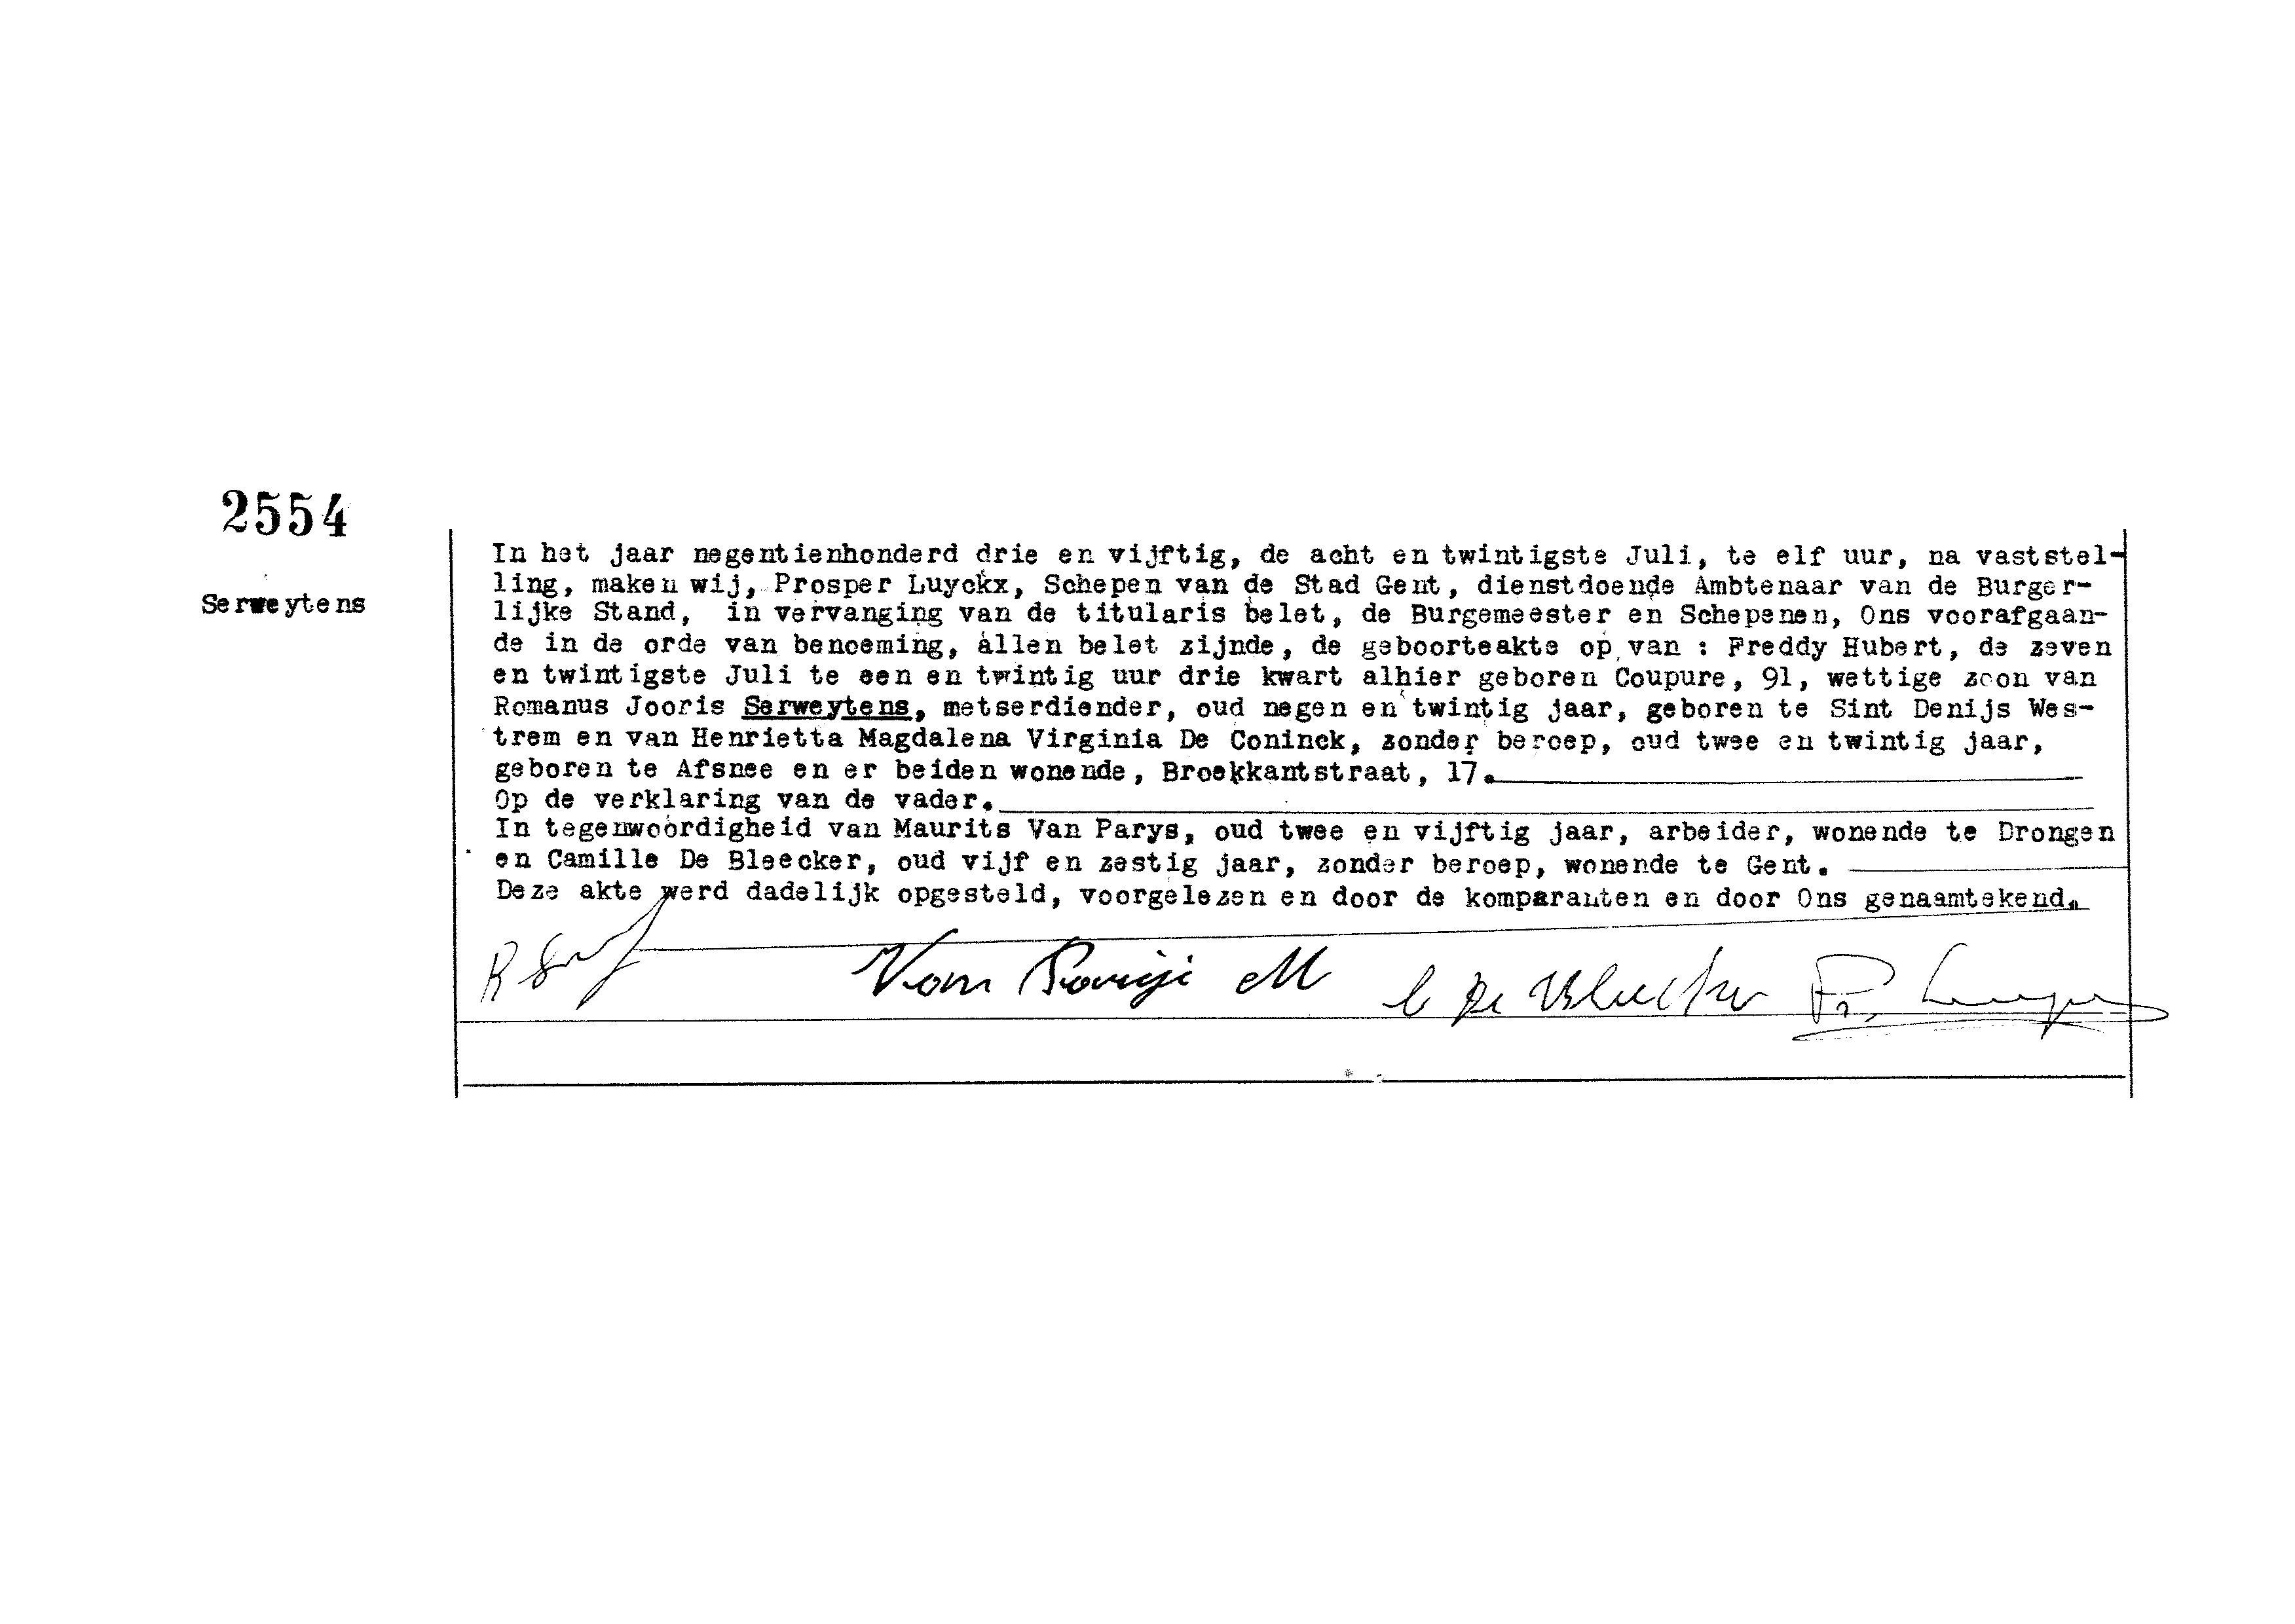 2554
Serweytens
In het jaar negentienhonderd drie en vijftig, de acht en twintigste Juli, te elf uur, na vaststel-
ling, maken wij, Prosper Luyckx, Schepen van de Stad Gent, dienstdoende Ambtenaar van de Burger-
lijke Stand, in vervanging van de titularis belet, de Burgemeester en Schepenen, Ons voorafgaan-
de in de orde van benoeming, allen belet zijnde, de geboorteakte op van : Freddy Hubert, de zeven
en twintigste Juli te een en twintig uur drie kwart alhier geboren Coupure, 91, wettige zoon van
Romanus Jooris Serweytens, metserdiender, oud negen en twintig jaar, geboren te Sint Denijs Wes-
trem en van Henrietta Magdalena Virginia De Coninck, zonder beroep, oud twee en twintig jaar,
geboren te Afsnee en er beiden wonende, Broekkantstraat, 17.
Op de verklaring van de vader.
In tegenwoordigheid van Maurits Van Parys, oud twee en vijftig jaar, arbeider, wonende te Drongen
en Camille De Bleecker, oud vijf en zestig jaar, zonder beroep, wonende te Gent.
Deze akte werd dadelijk opgesteld, voorgelezen en door de komparanten en door Ons genaamtekend.
R Van M C De Bleecker